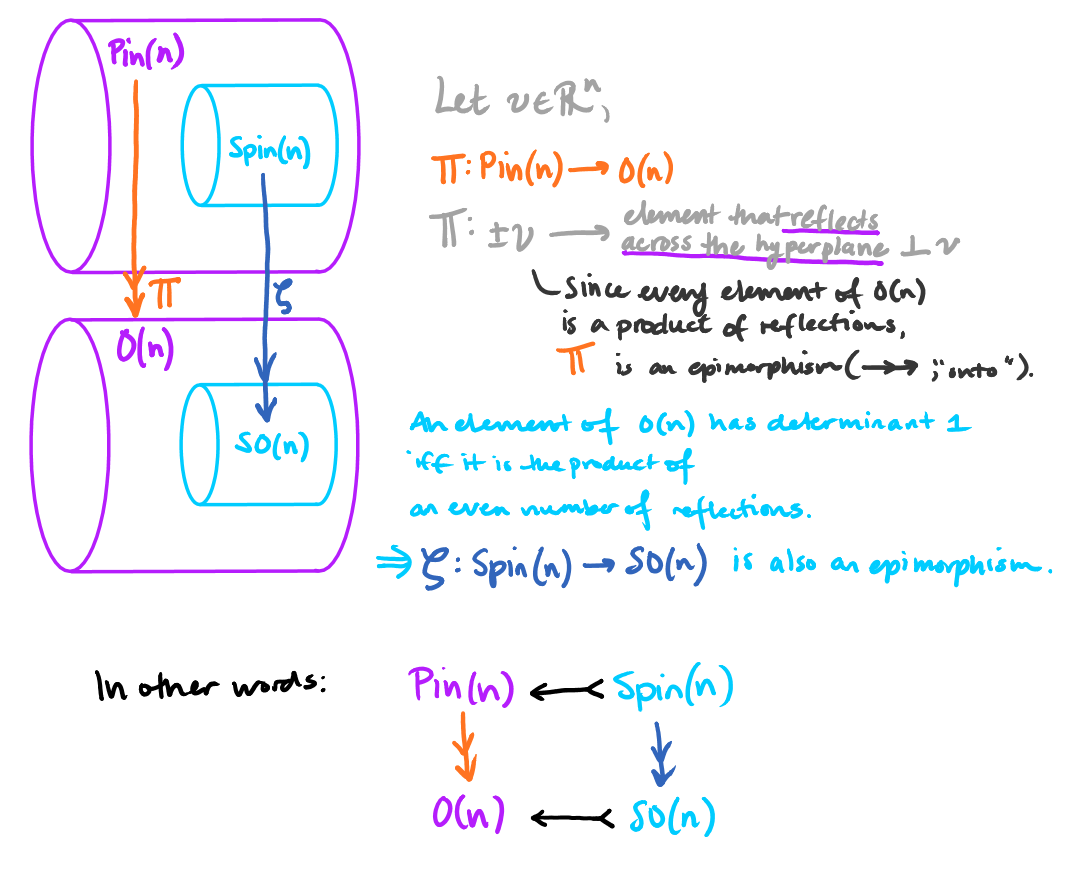 Pin(n)
Spin(n)
π
ζ
O(n)
SO(n)
Let v∈ℝⁿ,
π: Pin(n) → O(n)
π: ±v → element that reflects
across the hyperplane ⊥ v
Since every element of O(n)
is a product of reflections,
π is an epimorphism (↠ ; "onto").
An element of O(n) has determinant 1
iff it is the product of
an even number of reflections.
⇒ ζ: Spin(n) → SO(n) is also an epimorphism.
In other words: Pin(n) ↢ Spin(n)
O(n) ↢ SO(n)